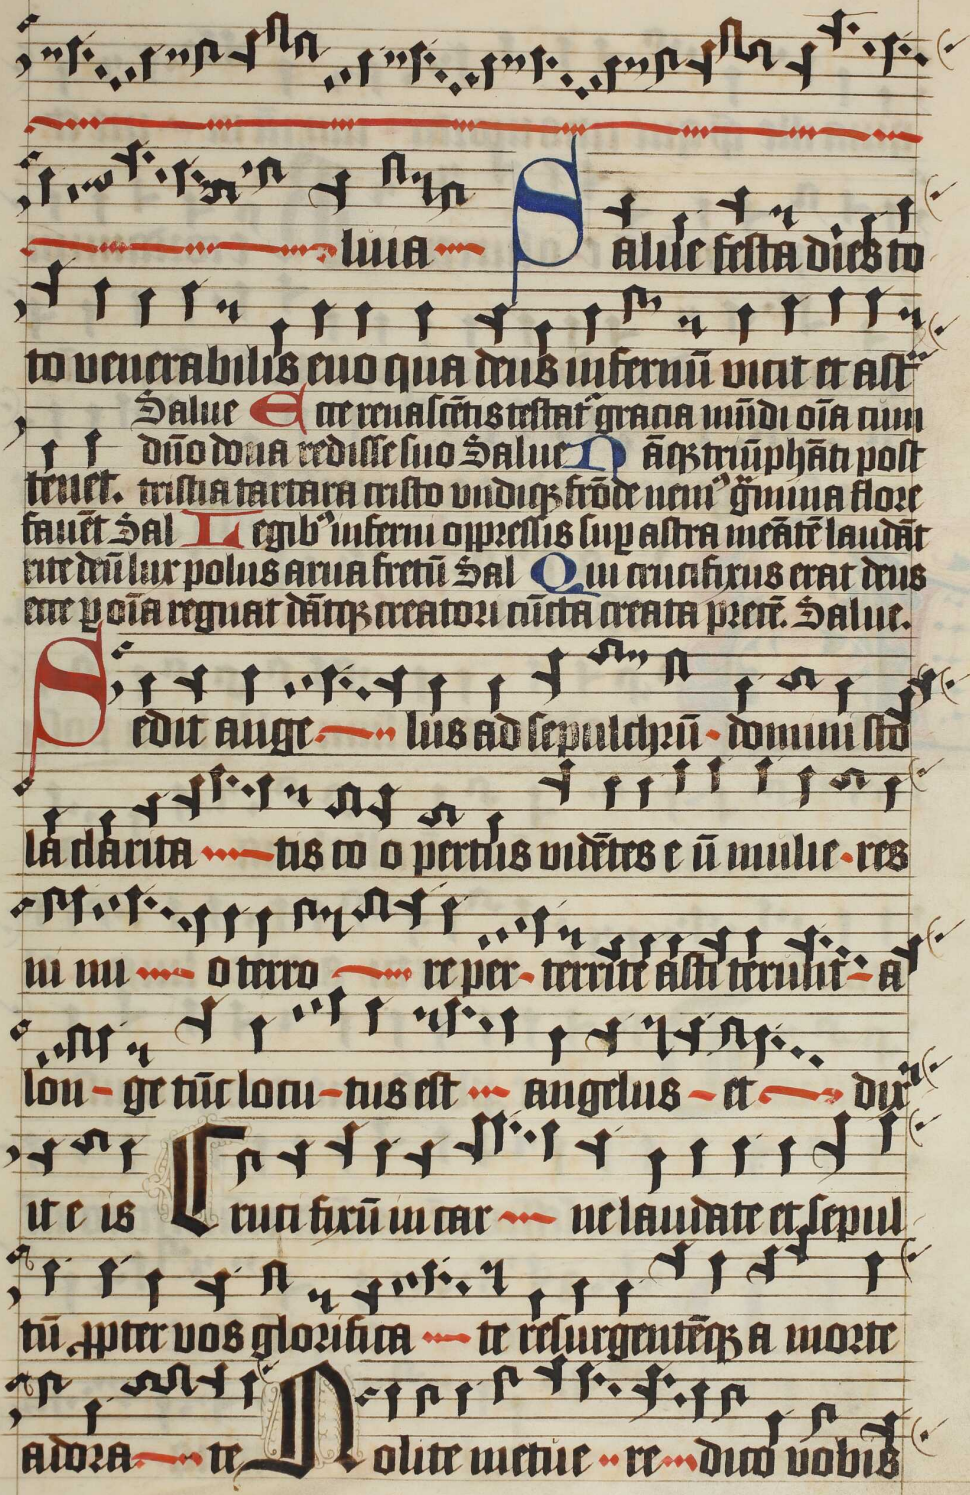 luia Salue festa dies to
to venerabilis euo qua deus infernū vicit et ast
Salue Ecce renascētis testat gracia mūdi oīa cum
dño dona redisse suo Salue Nāq; triūphāti post
tenet. tristia tartara cristo vndiq; frōde nem9 gmina flore
fauēt Sal Legib9 inferni oppressis sup astra meātē laudāt
rite deū lux polus arua fretū Sal Qui crucifixus erat deus
ecce p oīa regnat dātq; creatori cūcta creata precē. Salue.
Sedit ange lus ad sepulchrū domini sto
la clarita tis co opertus vidētes e ū mulie res
ni mi o terro re per territe asti terunt a
lon ge tūc locu tus est angelus et dix
it e is Crucifixū in car ne laudate et sepul
tū ppter vos glorifica te resurgentēq; a morte
adora te Nolite metue re dico vobis